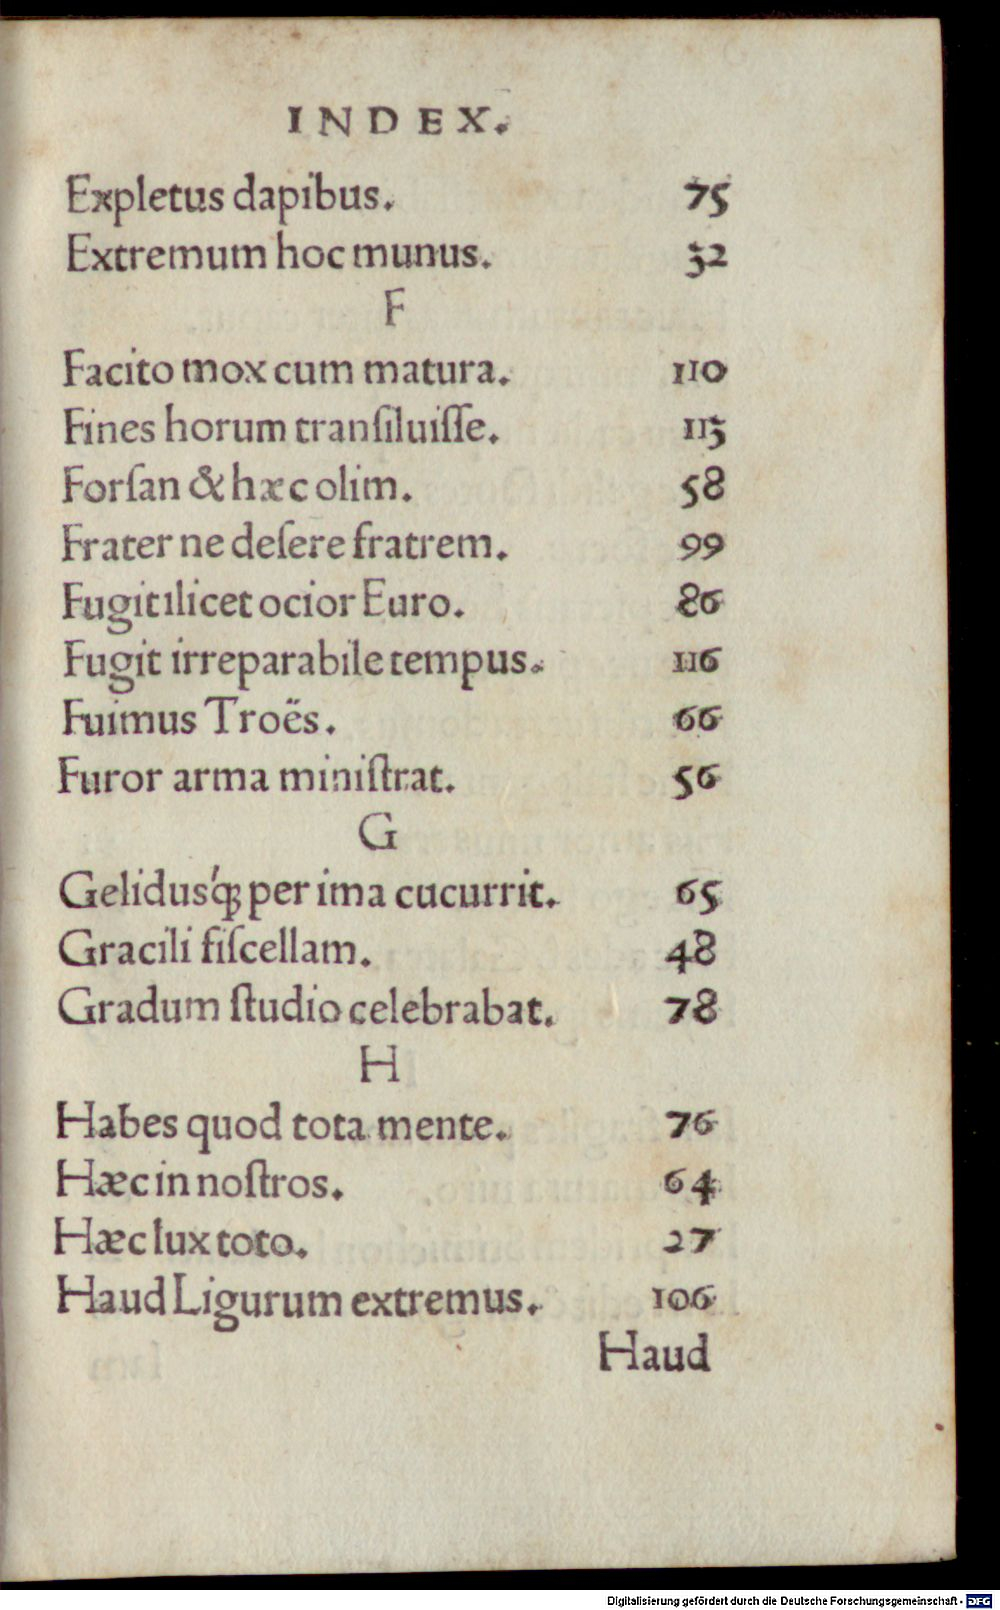 INDEX.
Expletus dapibus. 75
Extremum hoc munus. 32
F
Facito mox cum matura. 110
Fines horum tranſiluiſſe. 113
Forſan & hæc olim. 58
Frater ne deſere fratrem. 99
Fugit ilicet ocior Euro. 86
Fugit irreparabile tempus. 116
Fuimus Troës. 66
Furor arma miniſtrat. 56
G
Gelidusq́ꝫ per ima cucurrit. 65
Gracili fiſcellam. 48
Gradum ſtudio celebrabat. 78
H
Habes quod tota mente. 76
Hæc in noſtros. 64
Hæc lux toto. 27
Haud Ligurum extremus. 106
Haud
Digitalisierung gefördert durch die Deutsche Forschungsgemeinschaft - DFG